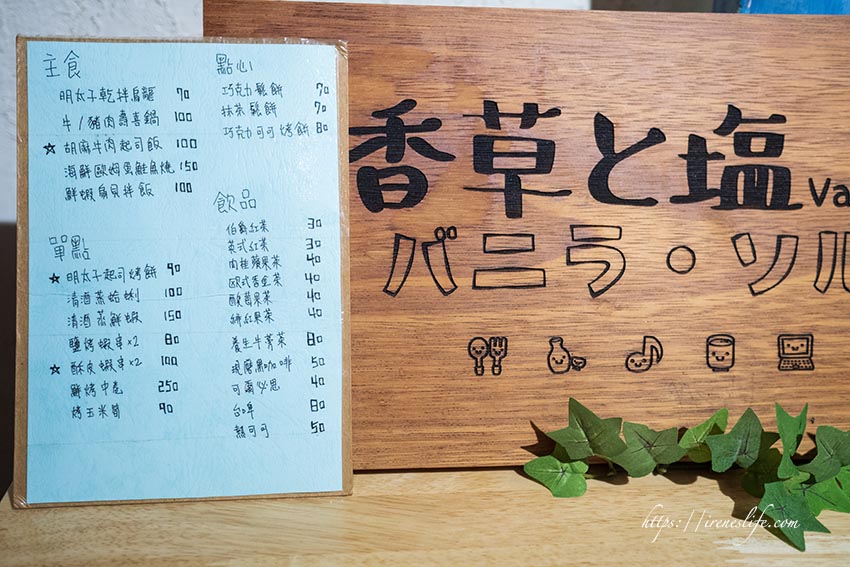 主食
明太子乾拌烏龍 70
牛/豬肉壽喜鍋 100
☆ 胡麻牛肉起司飯 100
海鮮歐姆蛋鮭魚燒 150
鮮蝦扇貝拌飯 100
單點
☆ 明太子起司烤餅 90
清酒蒸蛤蜊 100
清酒蒸鮮蝦 150
鹽烤蝦串×2 80
☆ 酥皮蝦串×2 100
鮮烤中卷 250
烤玉米筍 90
點心
巧克力鬆餅 70
抹茶鬆餅 70
巧克力可可烤餅 80
飲品
伯爵紅茶 30
英式紅茶 30
肉桂蘋果茶 40
歐式香生茶 40
酸莓果茶 40
緋紅果茶 40
養生牛蒡茶 80
現磨黑咖啡 50
可爾必思 40
台啤 80
熱可可 50
香草と塩 Va
バニラ・ソル
https://ireneslife.com